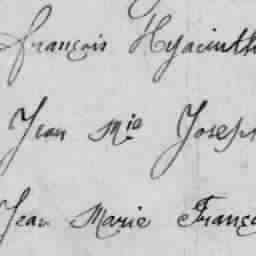 françois Hyacinth
Jean Mie Joseph
Jean Marie Franço